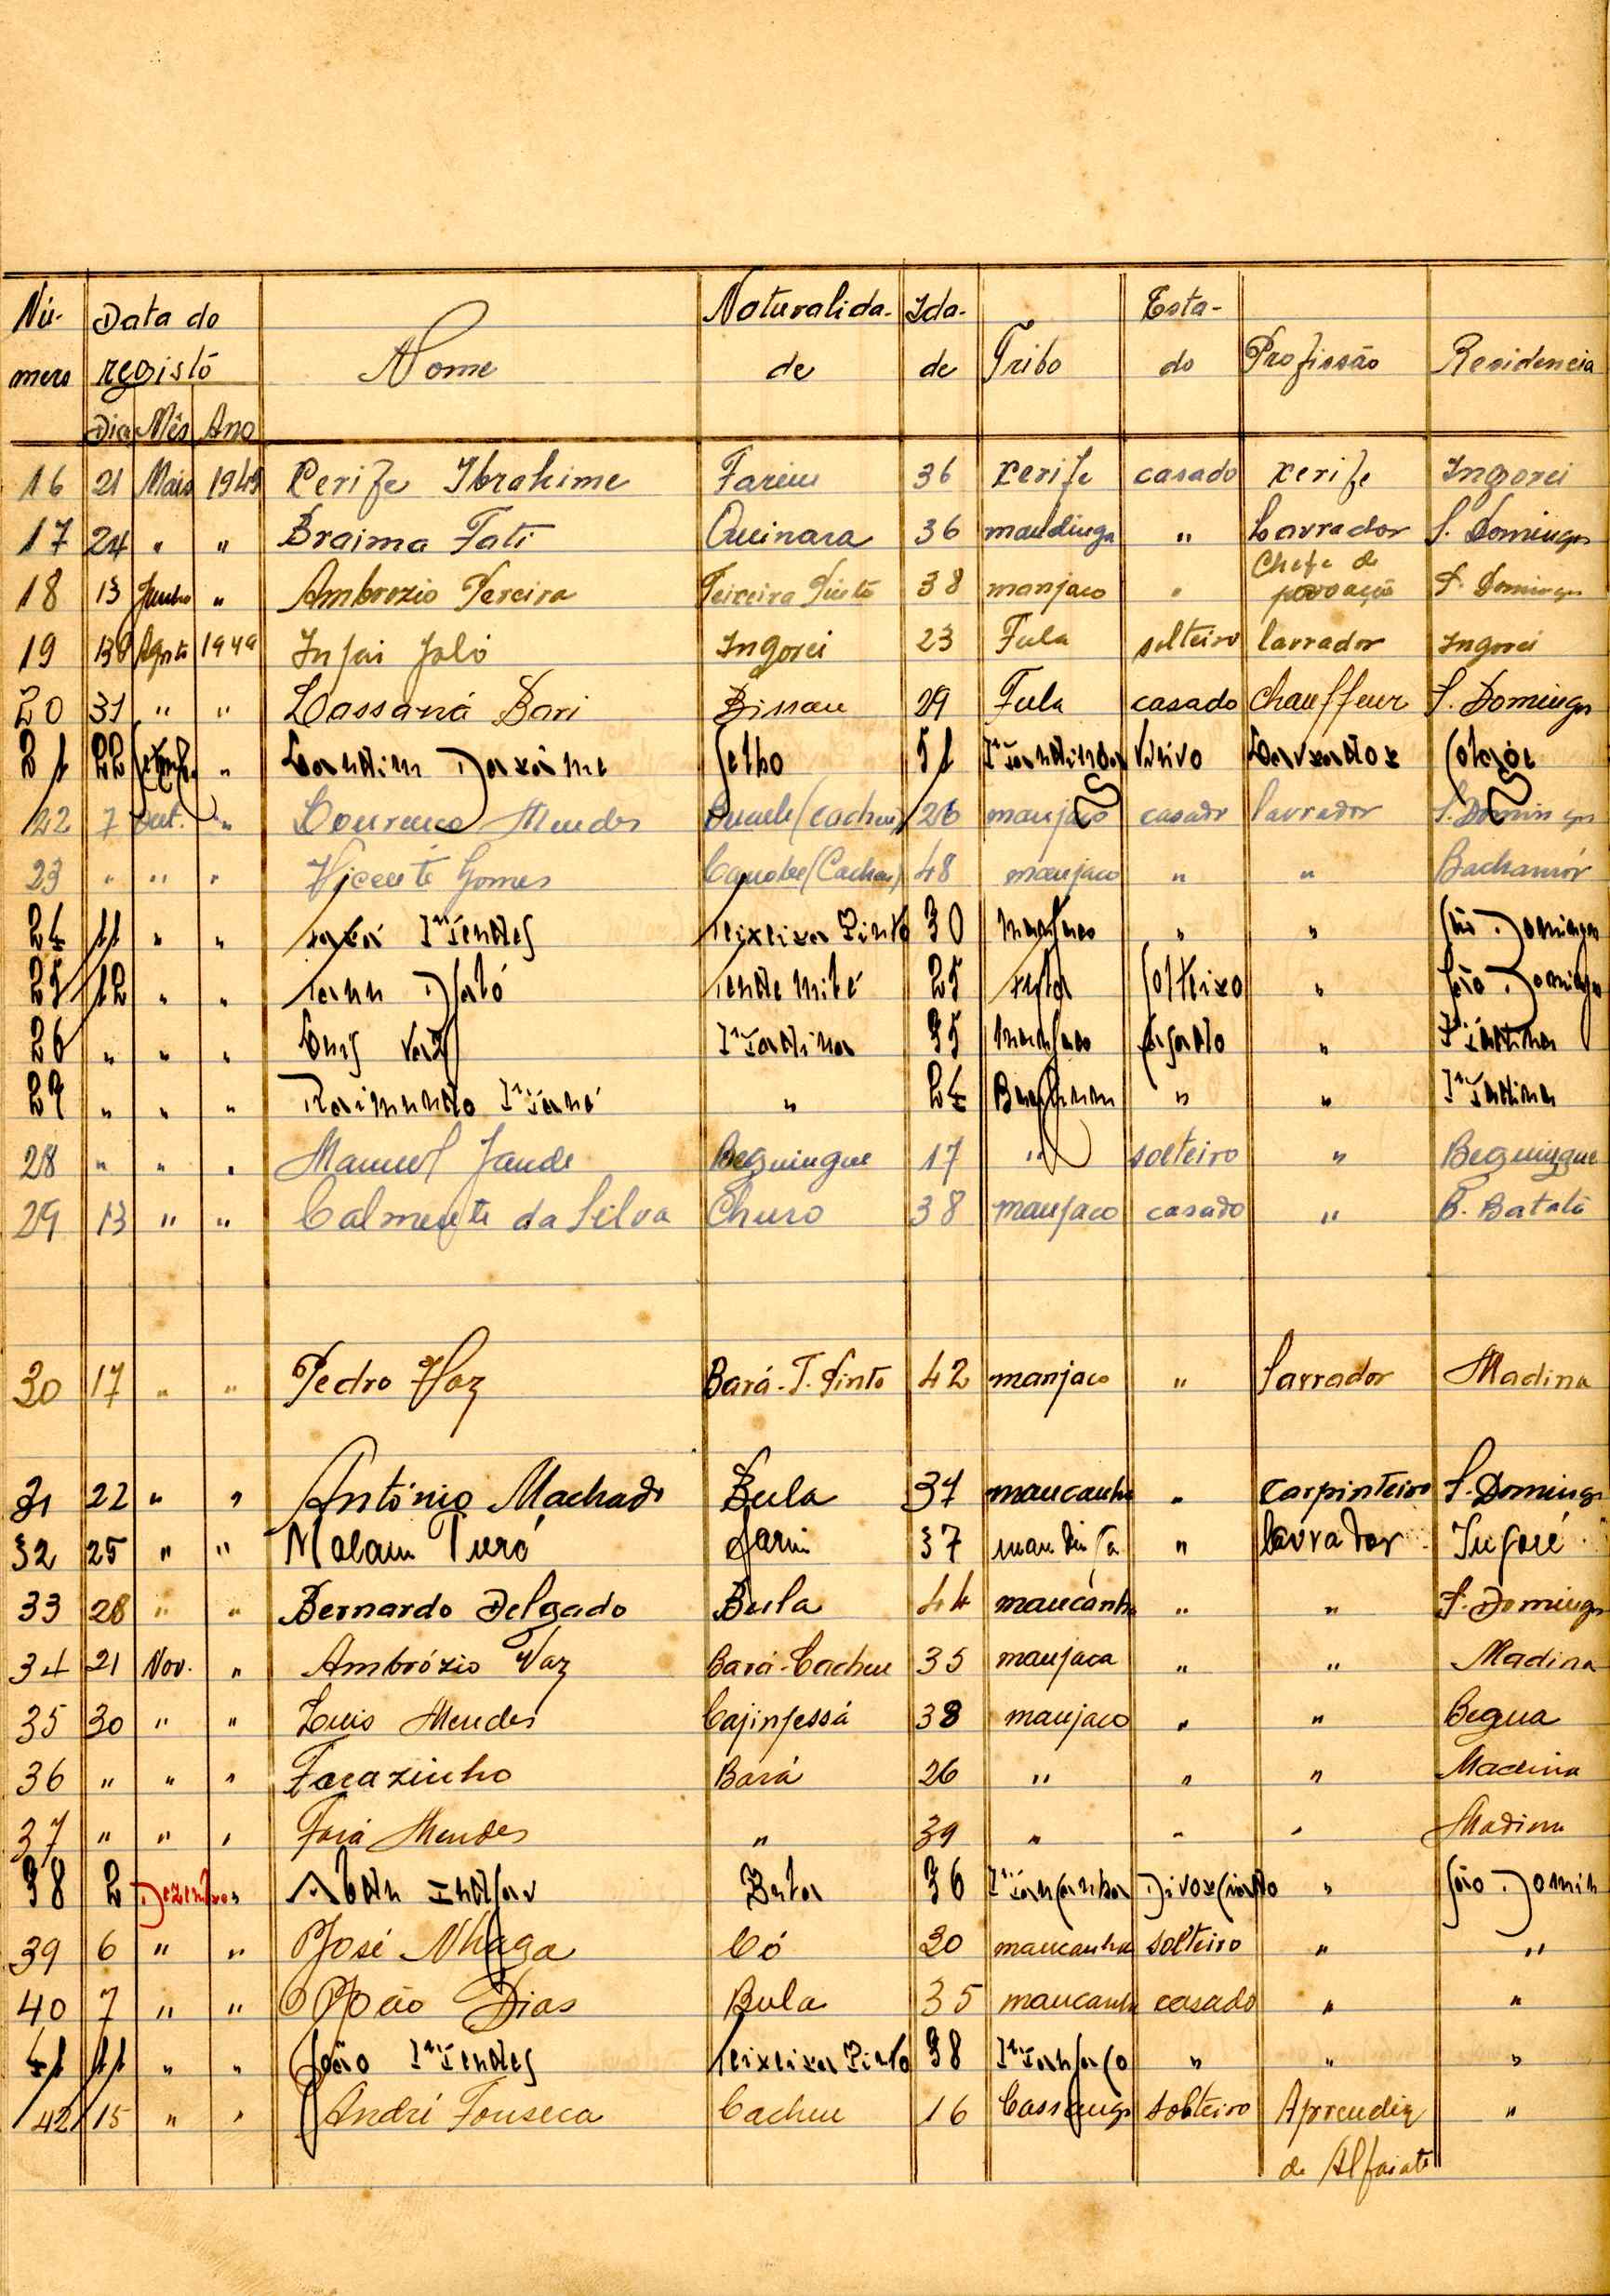 Nú- Data do Naturalida- Ida- Esta-
mero registo Nome de de Tribo do Profissão Residencia
Dia Mês Ano
16 21 Maio 1949 Xerife Ibrahime Farim 36 xerife casado xerife Ingorei
17 24 " " Braima Fati Quinara 36 mandinga " Lavrador S. Domingos
18 13 Junho " Ambrozio Pereira Teixeira Pinto 38 manjaco " Chefe de povoação S. Domingos
19 Agosto 1949 Injai Jaló Ingorei 23 Fula solteiro lavrador Ingorei
20 31 " " Lassaná Bari Bissau 29 Fula casado Chauffeur S. Domingos
21 22 " 51 Mandinga Viúvo Lavrador
22 7 Out. " Lourenço Mendes (Cacheu) 26 manjaco casado lavrador S. Domingos
23 " " " Vicente Gomes (Cacheu) 48 manjaco " "
24 11 " " Mendes Teixeira Pinto 30 Manjaco " " São Domingos
25 12 " " Djaló 25 Fula Solteiro " São Domingos
26 " " " Vaz Madina 35 Manjaco Casado " Madina
27 " " " Raimundo Mané " 24 " " Madina
28 " " " Manuel Jande Beguingue 17 " solteiro " Beguingue
29 13 " " da Silva Churo 38 manjaco casado "
30 17 " " Pedro Vaz Bará-T. Pinto 42 manjaco " lavrador Madina
31 22 " " António Machado Bula 37 mancanha " Carpinteiro S. Domingos
32 25 " " Malam Turé Farim 37 mandinga " lavrador Ingoré
33 28 " " Bernardo Delgado Bula 44 mancanha " " S. Domingos
34 21 Nov. " Ambrózio Vaz Bará-Cacheu 35 manjaca " " Madina
35 30 " " Luis Mendes Cajinjassá 38 manjaco " " Begua
36 " " " Farazinho Bará 26 " " " Madina
37 " " " Fará Mendes " 39 " " " Madina
38 2 Dezembro " Bula 36 Mancanha Divorciado " São Domin
39 6 " " José Nhaga Có 30 mancanha solteiro " "
40 7 " " João Dias Bula 35 mancanha casado " "
41 11 " " João Mendes Teixeira Pinto 38 Manjaco " " "
42 15 " " André Fonseca Cacheu 16 Cassanga solteiro Aprendiz "
de Alfaiate